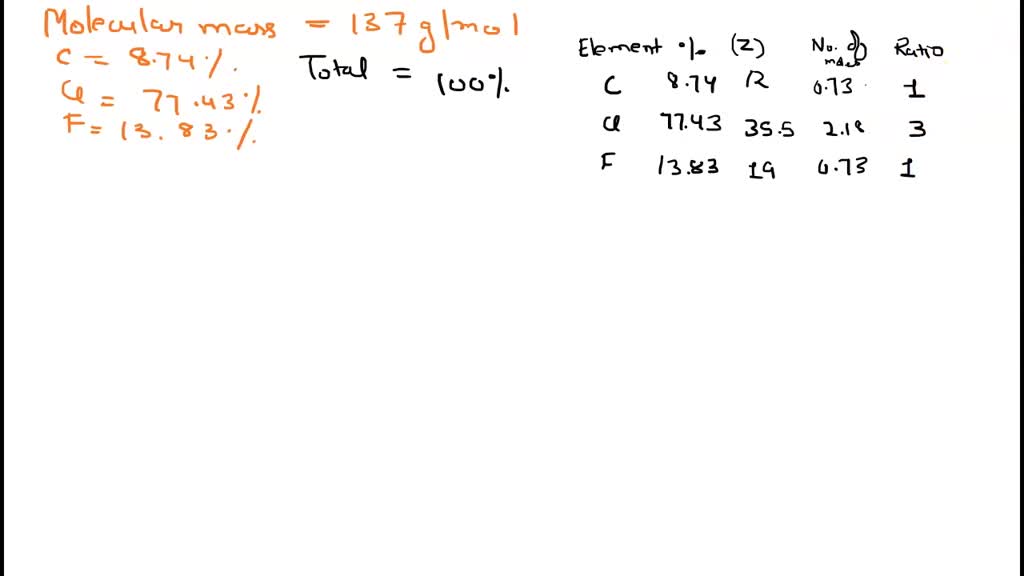 Molecular mass = 137 g/mol
C = 8.74 %.
Cl = 77.43 %
F = 13.83 %.
Total = 100 %.
Element % (Z) No. of moles Ratio
C 8.74 12 0.73 1
Cl 77.43 35.5 2.18 3
F 13.83 19 0.73 1